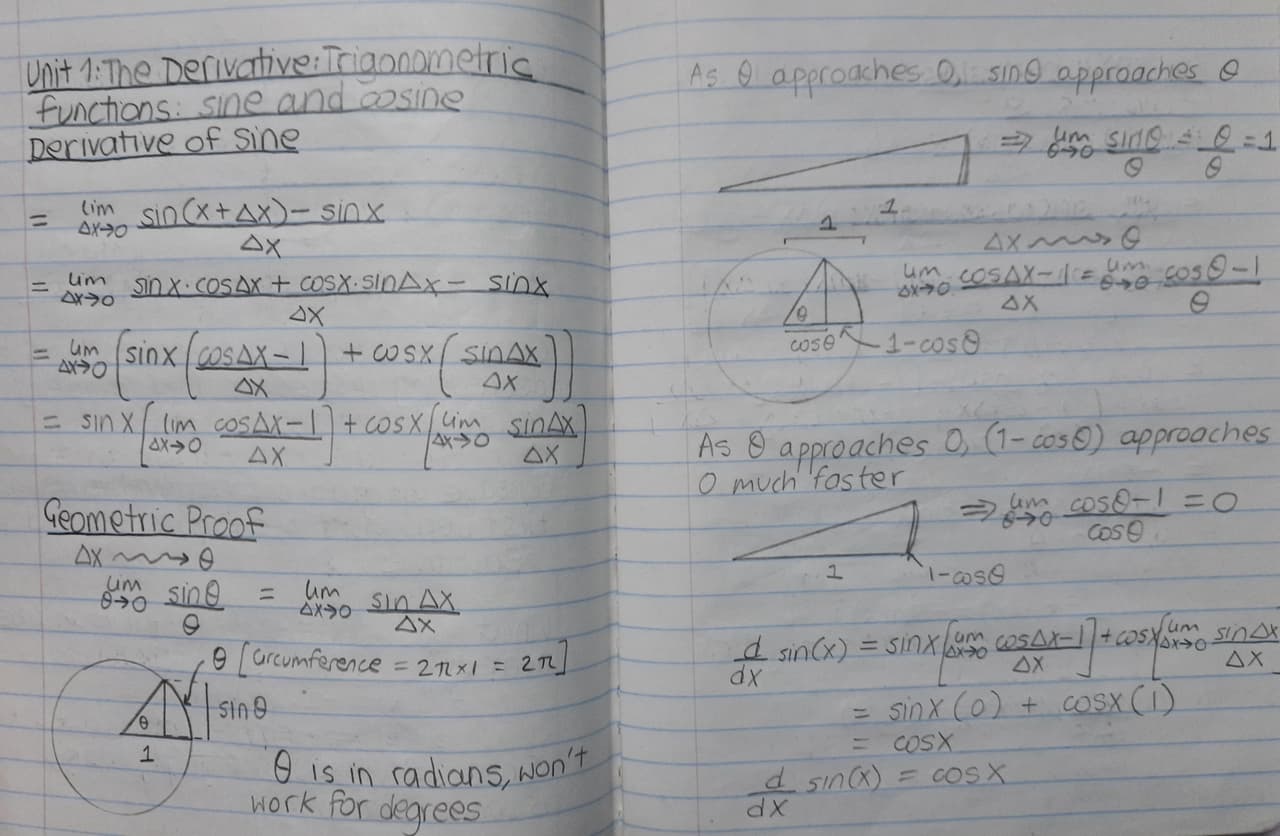 Unit 1: The Derivative: Trigonometric
functions: sine and cosine
Derivative of sine
= lim Δx→0 (sin(x+Δx) − sinx)/Δx
= lim Δx→0 (sinx·cosΔx + cosx·sinΔx − sinx)/Δx
= lim Δx→0 (sinx((cosΔx−1)/Δx) + cosx(sinΔx/Δx))
= sinx[lim Δx→0 (cosΔx−1)/Δx] + cosx[lim Δx→0 sinΔx/Δx]
Geometric Proof
Δx ⇝ θ
lim θ→0 sinθ/θ = lim Δx→0 sinΔx/Δx
θ [circumference = 2π×1 = 2π]
θ
sinθ
1
θ is in radians, won't
work for degrees
As θ approaches 0, sinθ approaches θ
⇒ lim θ→0 sinθ/θ = θ/θ = 1
1
1
Δx ⇝ θ
lim Δx→0 (cosΔx−1)/Δx = lim θ→θ (cosθ−1)/θ
θ
cosθ
1−cosθ
As θ approaches 0, (1−cosθ) approaches
0 much faster
⇒ lim θ→0 (cosθ−1)/cosθ = 0
1
1−cosθ
d/dx sin(x) = sinx[lim Δx→0 (cosΔx−1)/Δx] + cosx[lim Δx→0 sinΔx/Δx
= sinx(0) + cosx(1)
= cosx
d/dx sin(x) = cosx